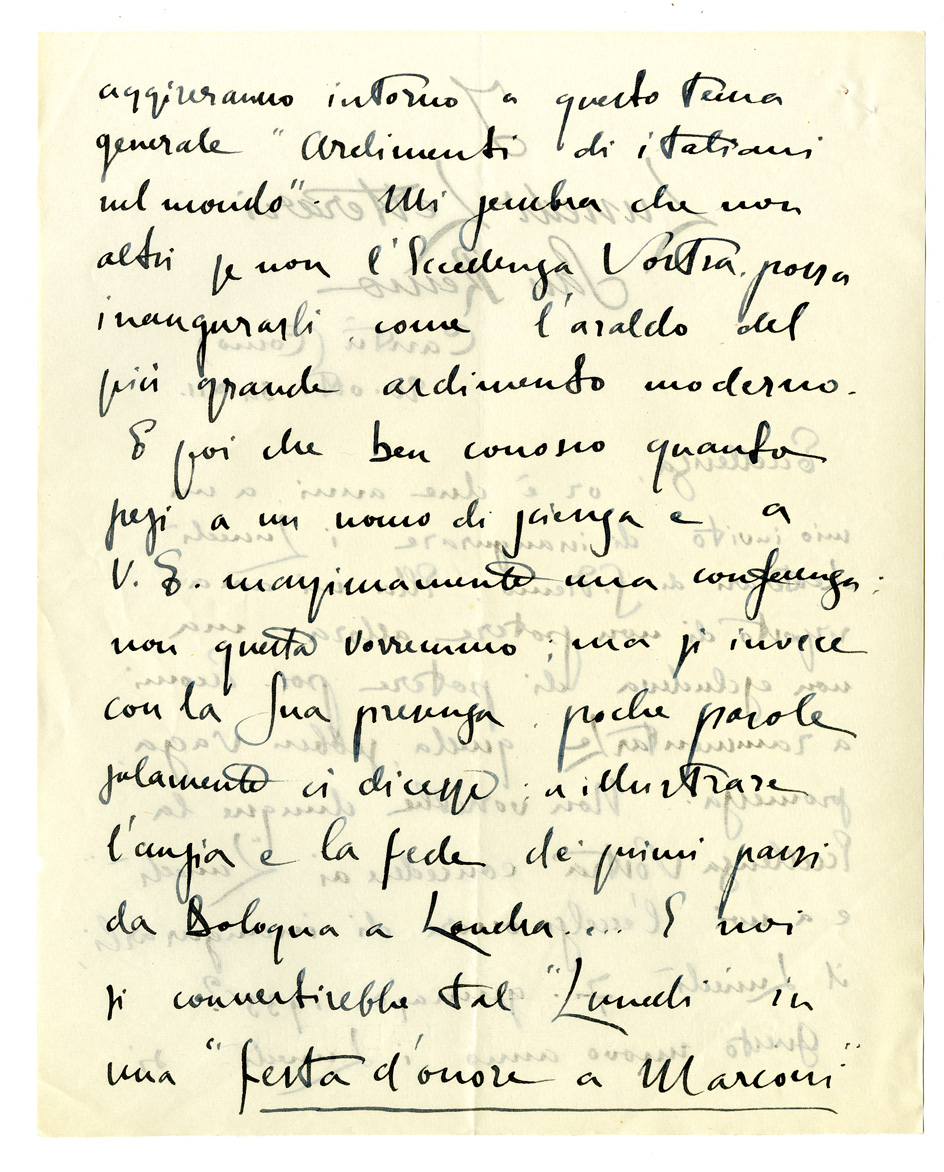 aggireranno intorno a questo tema
generale "Ardimenti di italiani
nel mondo". Mi sembra che non
altri se non l'Eccellenza Vostra, possa
inaugurarli come l'araldo del
più grande ardimento moderno.
E poi che ben conosco quanto
pesi a un uomo di scienza e a
V. E. massimamente una conferenza:
non questa vorremmo; ma si invece
con la Sua presenza. poche parole
solamente ci dicesse: a illustrare
l'ansia e la fede dei primi passi
da Bologna a Londra.... E noi
si convertirebbe tal "Lunedi" in
una "festa d'onore a Marconi"